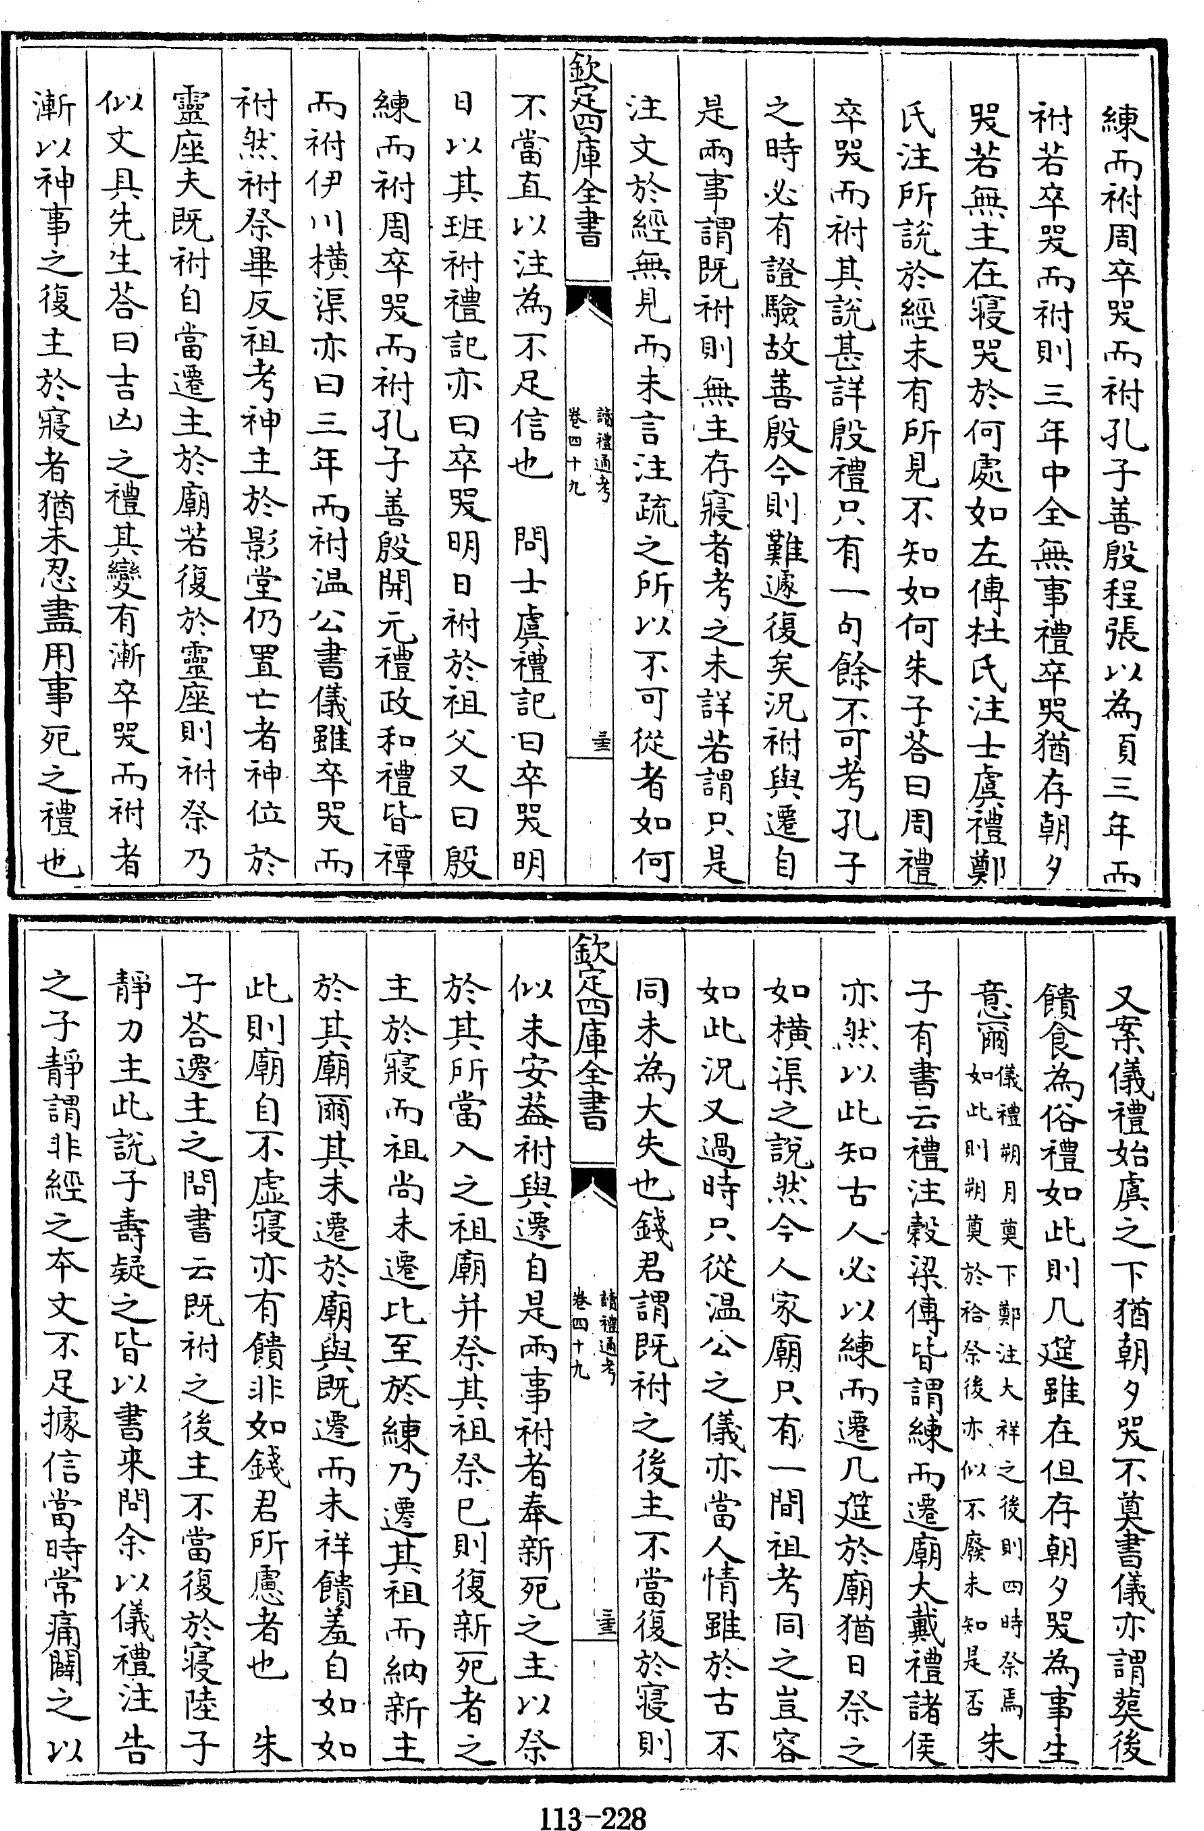 練而祔周卒哭而祔孔子善殷程張以為須三年而
祔若卒哭而祔則三年中全無事禮卒哭猶存朝夕
哭若無主在寢哭於何處如左傳杜氏注士虞禮鄭
氏注所說於經未有所見不知如何朱子荅曰周禮
卒哭而祔其說甚詳殷禮只有一句餘不可考孔子
之時必有證驗故善殷今則難遽復矣況祔與遷自
是兩事謂既祔則無主存寢者考之未詳若謂只是
注文於經無見而未言注疏之所以不可從者如何
欽定四庫全書
讀禮通考
卷四十九
不當直以注為不足信也　問士虞禮記曰卒哭明
日以其班祔禮記亦曰卒哭明日祔於祖父又曰殷
練而祔周卒哭而祔孔子善殷開元禮政和禮皆禫
而祔伊川橫渠亦曰三年而祔温公書儀雖卒哭而
祔然祔祭畢反祖考神主於影堂仍置亡者神位於
靈座夫既祔自當遷主於廟若復於靈座則祔祭乃
似文具先生荅曰吉凶之禮其變有漸卒哭而祔者
漸以神事之復主於寢者猶未忍盡用事死之禮也
又案儀禮始虞之下猶朝夕哭不奠書儀亦謂葬後
饋食為俗禮如此則几筵雖在但存朝夕哭為事生
意爾儀禮朔月奠下鄭注大祥之後則四時祭焉如此則朔奠於祫祭後亦似不廢未知是否朱
子有書云禮注穀梁傳皆謂練而遷廟大戴禮諸侯
亦然以此知古人必以練而遷几筵於廟猶日祭之
如橫渠之說然今人家廟只有一間祖考同之豈容
如此況又過時只從温公之儀亦當人情雖於古不
同未為大失也錢君謂既祔之後主不當復於寢則
欽定四庫全書
讀禮通考
卷四十九
似未安葢祔與遷自是兩事祔者奉新死之主以祭
於其所當入之祖廟并祭其祖祭已則復新死者之
主於寢而祖尚未遷比至於練乃遷其祖而納新主
於其廟爾其未遷於廟與既遷而未祥饋羞自如如
此則廟自不虛寢亦有饋非如錢君所慮者也　朱
子荅遷主之問書云既祔之後主不當復於寢陸子
靜力主此說子壽疑之皆以書來問余以儀禮注告
之子靜謂非經之夲文不足據信當時常痛闢之以
113-228